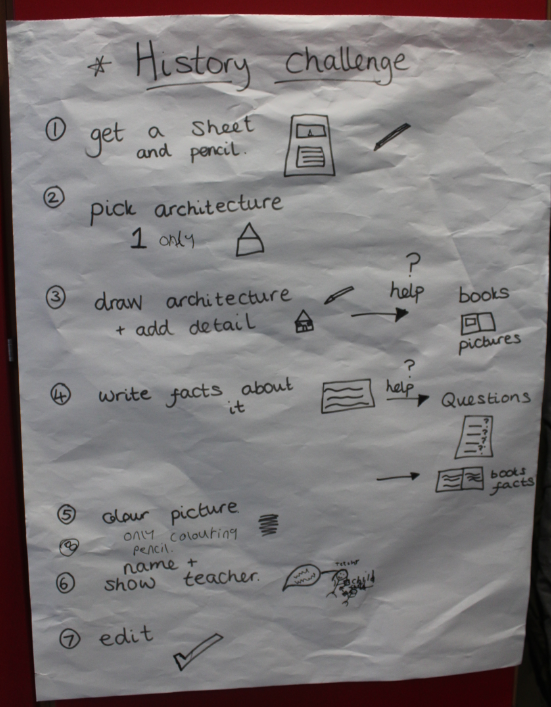 * History challenge
① get a sheet
and pencil.
② pick architecture
1 only
③ draw architecture
+ add detail
?
help
books
pictures
④ write facts about
it
?
help
Questions
?
?
?
?
books
facts
⑤ colour picture
only colouting
pencil.
name +
⑥ show teacher.
⑦ edit